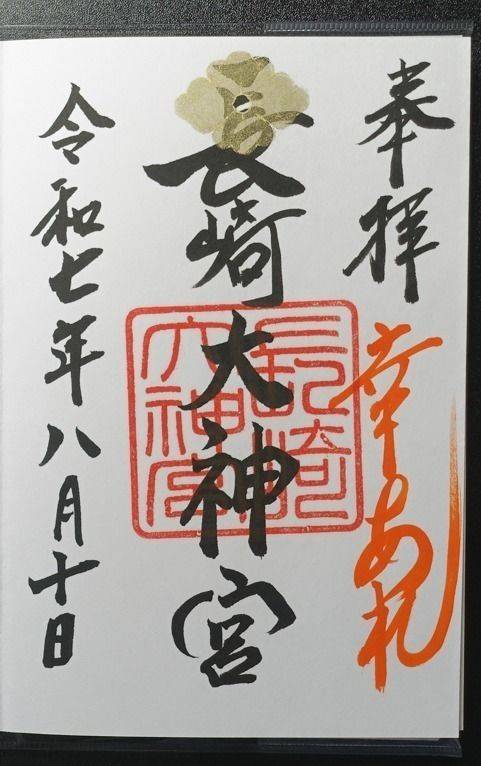 奉拝
幸あれ
長崎大神宮
長崎
大神宮
令和七年八月十日